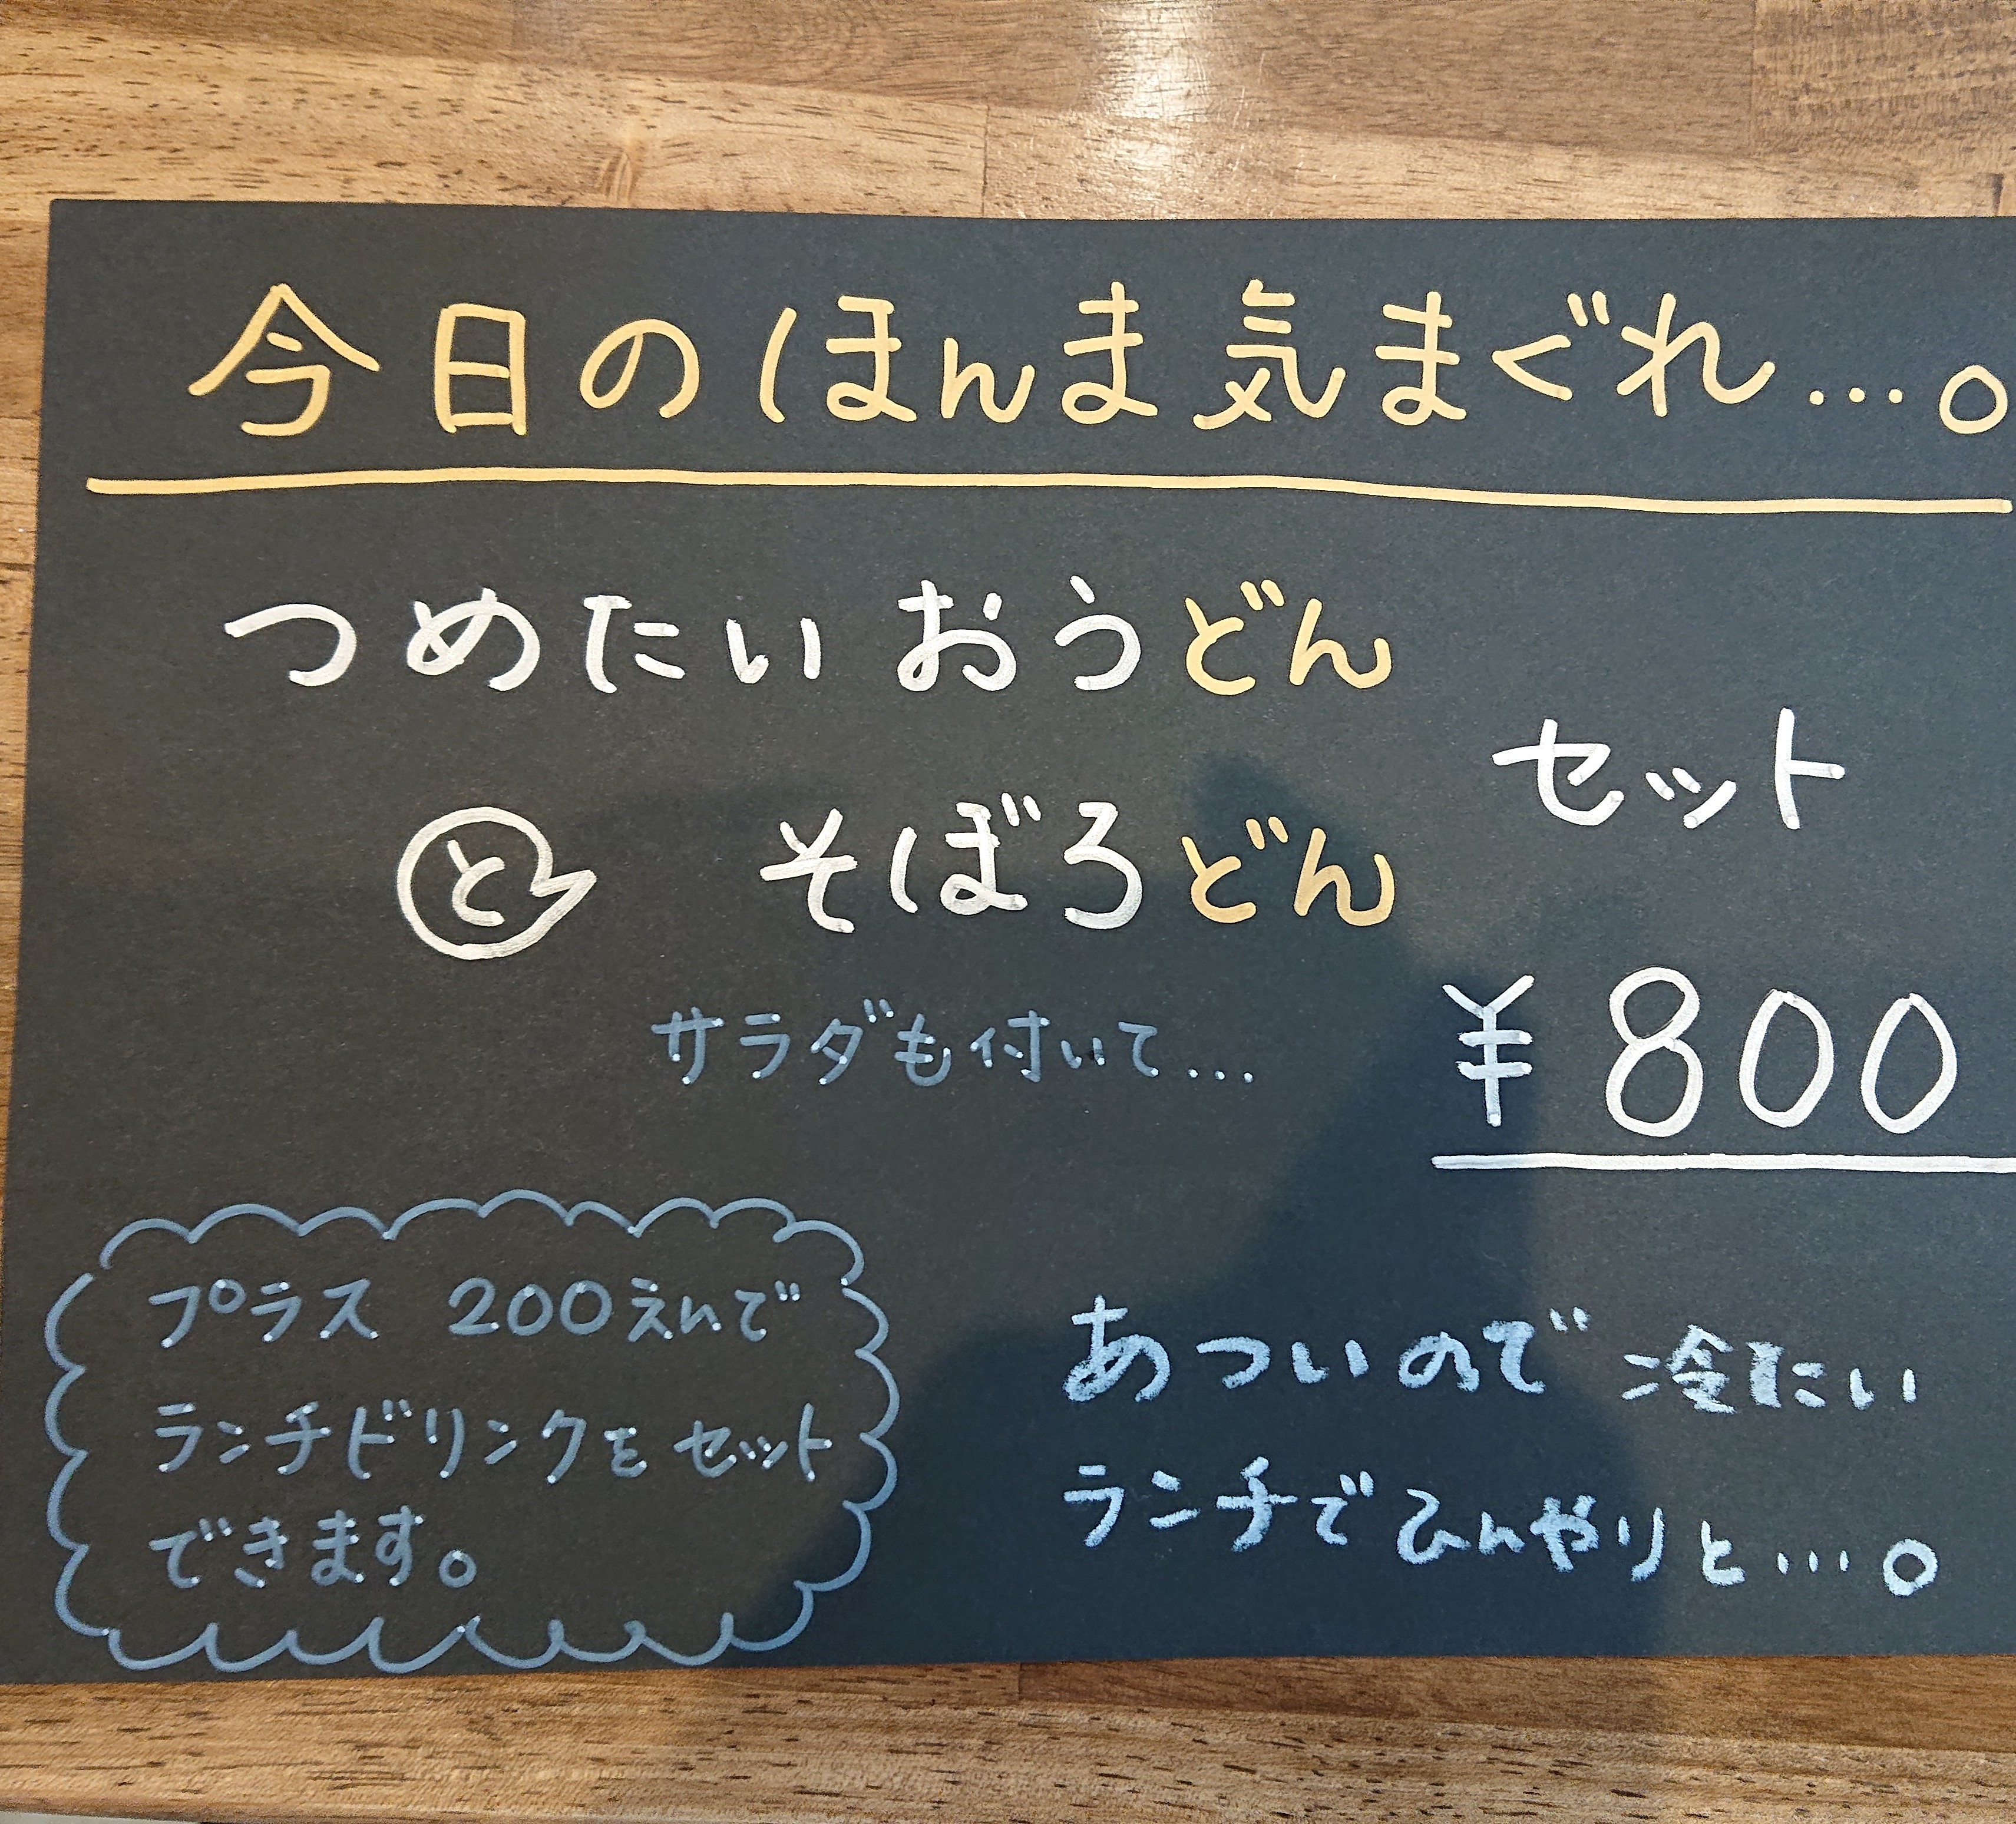 今日のほんま気まぐれ…。
つめたいおうどん
セット
と そぼろどん
サラダも付いて…
¥800
プラス 200えんで
ランチドリンクをセット
できます。
あついので冷たい
ランチでひんやりと…。